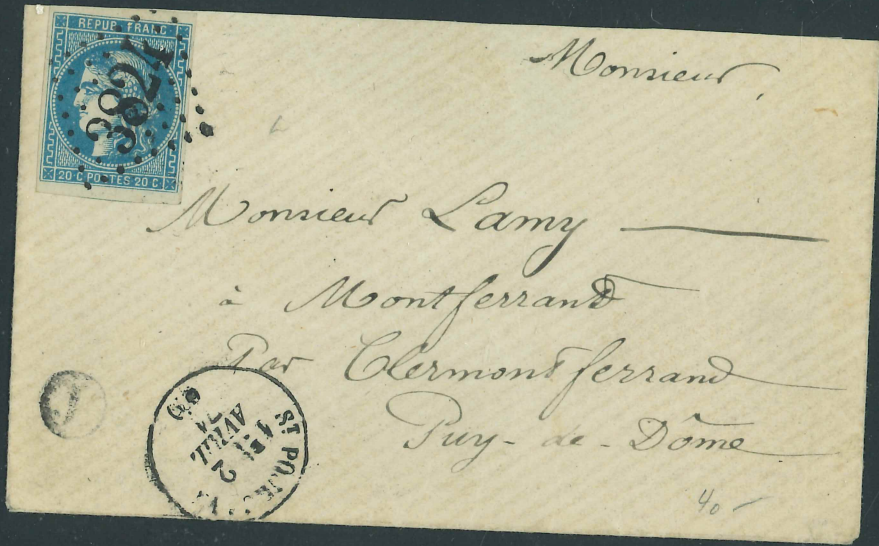 REPUB FRANC
3824
20·C POSTES 20 C
Monsieur
Monsieur Lamy
à Montferrand
Par Clermont ferrand
Puy-de-Dôme
1E
2
AVRIL
ST
40